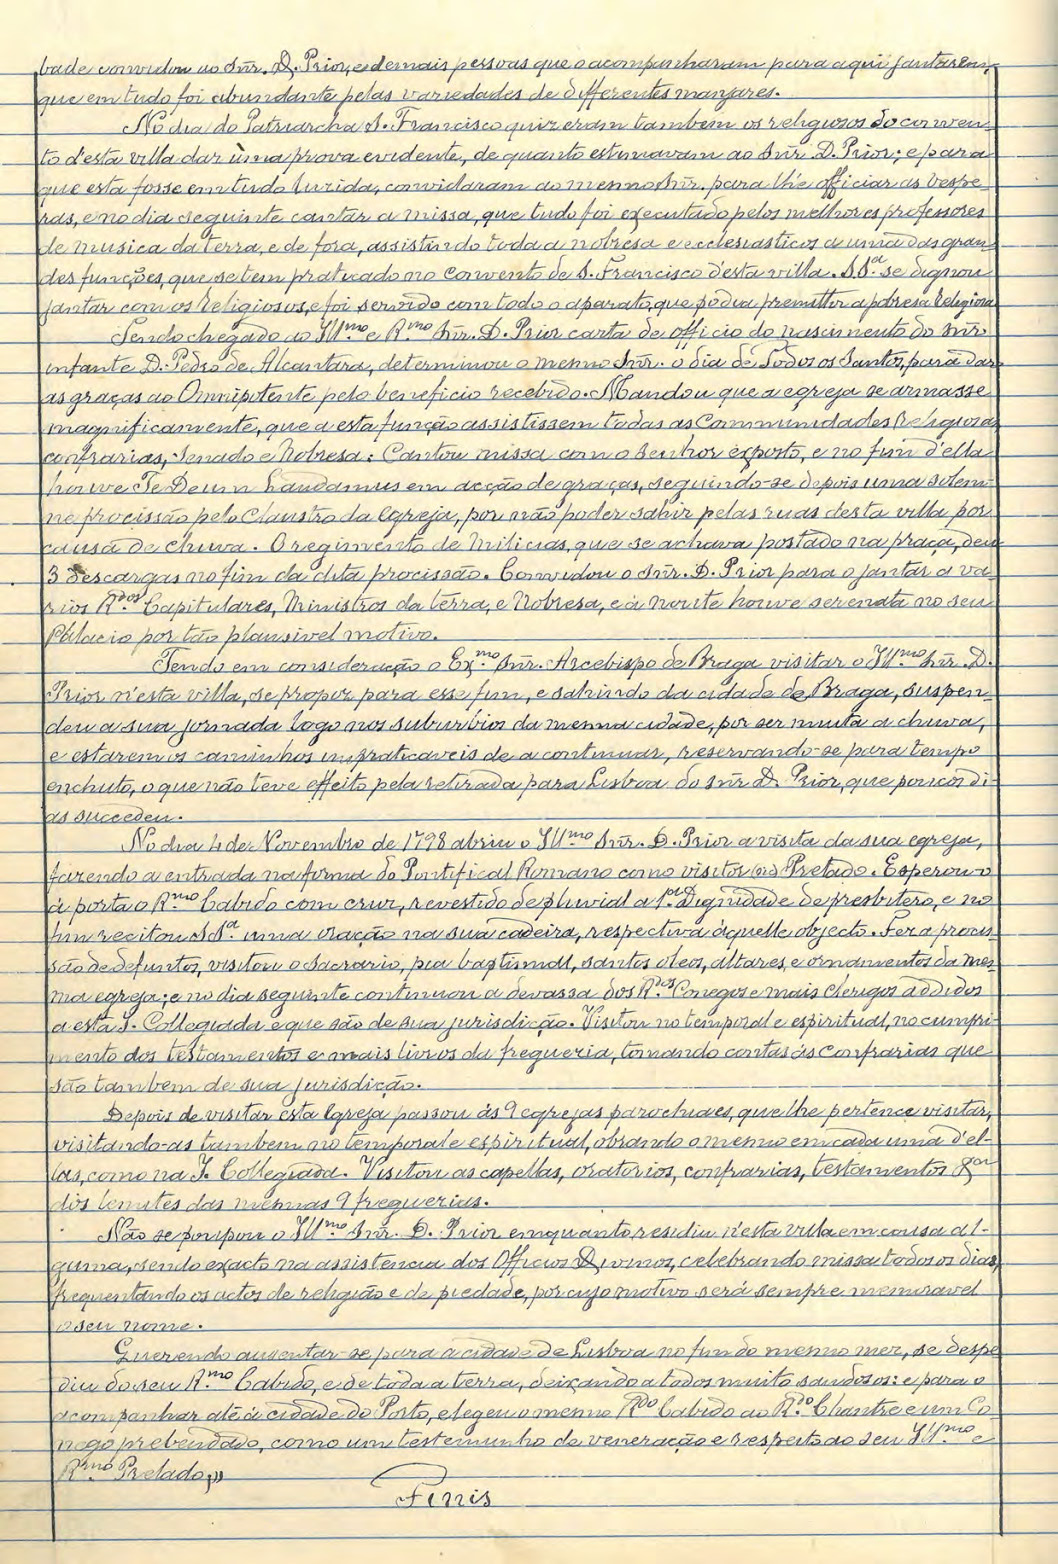 bade convidou ao Snr. D. Prior, e demais pessoas que o acompanharam para aqui jantarem,
que em tudo foi abundante pelas variedades de differentes manjares.
No dia do Patriarcha S. Francisco quizeram tambem os religiosos do conven-
to d'esta villa dar uma prova evidente, de quanto estimavam ao Snr. D. Prior; e para
que esta fosse em tudo luzida, convidaram ao mesmo Snr. para lhe officiar as vespe-
ras, e no dia seguinte cantar a missa, que tudo foi executado pelos melhores professores
de musica da terra, e de fora, assistindo toda a nobresa e ecclesiasticos a uma das gran-
des funções, que se tem praticado no convento de S. Francisco d'esta villa. S. S.ª se dignou
jantar com os Religiosos, e foi servido com todo o aparato, que podia premittir a pobresa Religiosa
Tendo chegado ao Ill.mo e R.mo Snr. D. Prior carta de officio do nascimento do Snr.
infante D. Pedro de Alcantara, determinou o mesmo Snr. o dia de Todos os Santos, para dar
as graças ao Omnipotente pelo beneficio recebido. Mandou que a egreja se armasse
magnificamente, que a esta função assistissem todas as Communidades Religiosas
confrarias, Senado e Nobresa: Cantou missa com o Senhor exposto, e no fim d'ella
houve Te Deum Laudamus em acção de graças, seguindo-se depois uma solem-
ne procissão pelo Claustro da Egreja, por não poder sahir pelas ruas desta villa por
causa de chuva. O regimento de Milicias, que se achava postado na praça, deu
3 descargas no fim da dita procissão. Convidou o Snr. D. Prior para o jantar a va-
rios R.dos Capitulares, Ministros da terra, e Nobresa, e á noute houve serenata no seu
Palacio por tão plausivel motivo.
Tendo em consideração o Ex.mo Snr. Arcebispo de Braga visitar o Ill.mo Snr. D.
Prior n'esta villa, se propoz para esse fim, e sahindo da cidade de Braga, suspen-
deu a sua jornada logo nos suburbios da mesma cidade, por ser muita a chuva,
e estarem os caminhos impraticaveis de a continuar, reservando-se para tempo
enchuto, o que não teve effeito pela retirada para Lisboa do Snr. D. Prior, que poucos di-
as succedeu.
No dia 4 de Novembro de 1798 abriu o Ill.mo Snr. D. Prior a visita da sua egreja,
fazendo a entrada na forma do Pontifical Romano como visitor (sic) Prelado. Esperou-o
á porta o R.mo Cabido com cruz, revestido de pluvial a 1.ª Dignidade de presbitero, e no
fim recitou S. S.ª uma oração na sua cadeira, respectiva áquelle objecto. Fez a procis-
são de defuntos, visitou o Sacrario, pia baptismal, santos oleos, altares, e ornamentos da mes-
ma egreja; e no dia seguinte continuou a devassa dos R.os Conegos e mais Clerigos addidos
a esta I. Collegiada e que são de sua jurisdição. Visitou no temporal e espiritual, no cumpri-
mento dos testamentos e mais livros da freguezia, tomando contas ás confrarias que
são tambem de sua jurisdição.
Depois de visitar esta Egreja passou ás 9 egrejas parochiaes, que lhe pertence visitar,
visitando-as tambem no temporal e espiritual, obrando o mesmo em cada uma d'el-
las, como na I. Collegiada. Visitou as capellas, oratorios, confrarias, testamentos &ca
dos lemites das mesmas 9 freguezias.
Não se poupou o Ill.mo Snr. D. Prior emquanto residiu n'esta villa em cousa al-
guma, sendo exacto na assistencia dos Officios Divinos, celebrando missa todos os dias,
frequentando os actos de religião e de piedade, por cujo motivo será sempre memoravel
o seu nome.
Querendo ausentar-se para a cidade de Lisboa no fim do mesmo mez, se despe
diu do seu R.mo Cabido, e de toda a terra, deixando a todos muito saudosos: e para o
acompanhar até á cidade do Porto, elegeu o mesmo R.do Cabido ao R.do Chantre e um Co
nego prebendado, como um testemunho de veneração e respeito ao seu Ill.mo e
R.mo Prelado,,,
Finis